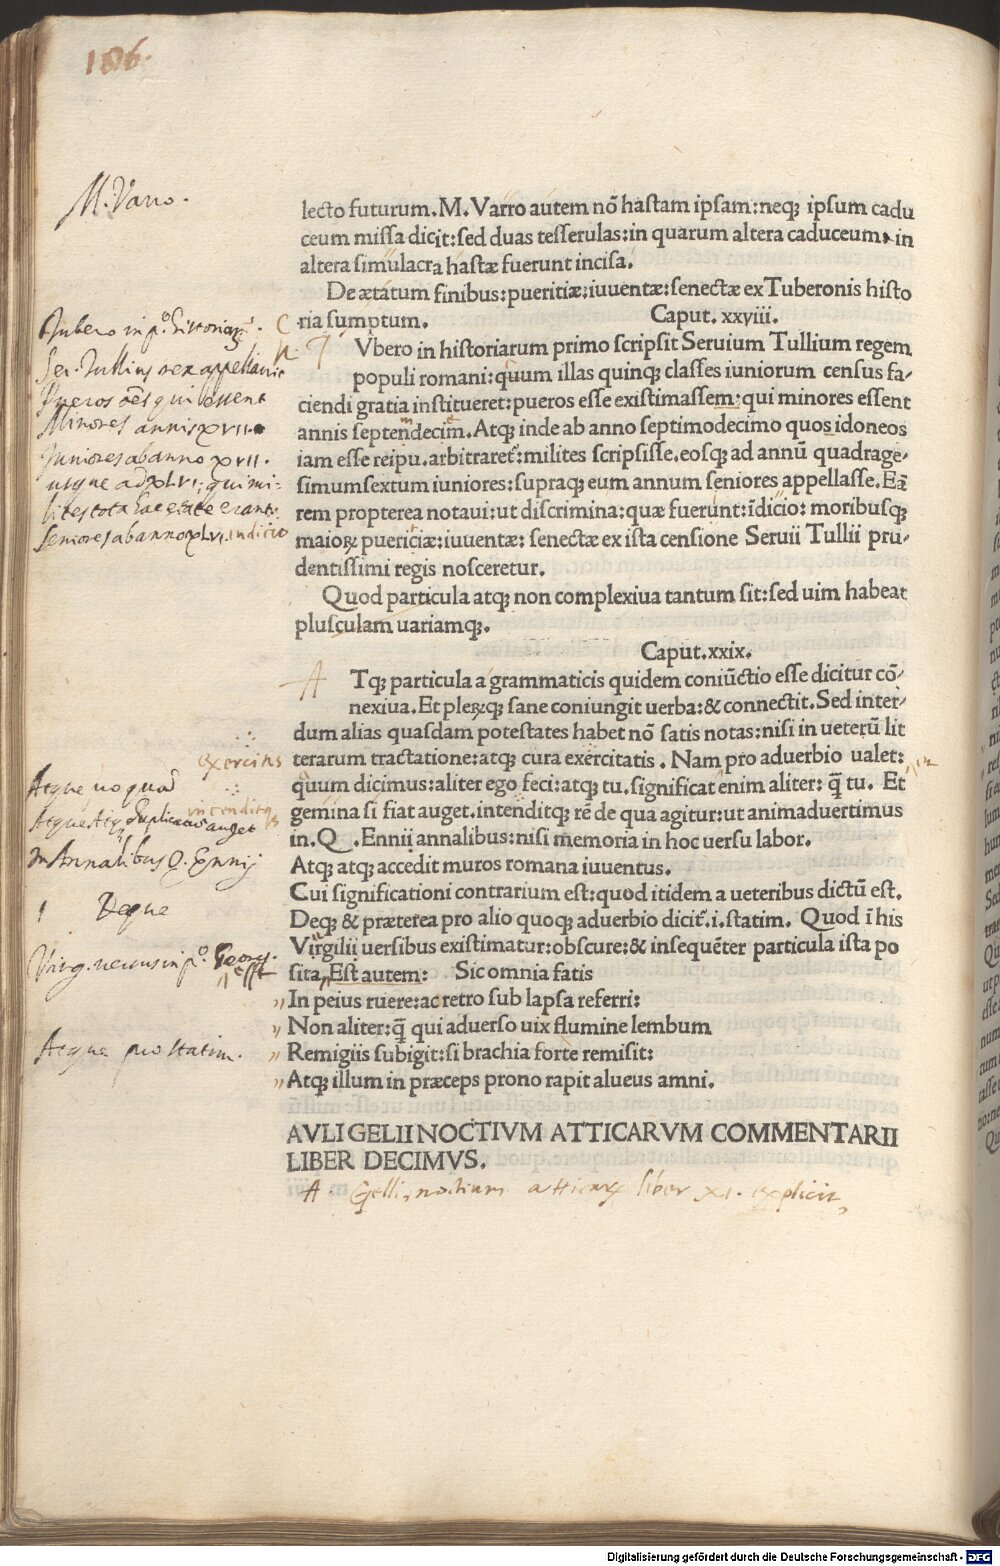 186.
M. Varro.
lecto futurum. M. Varro autem nõ hastam ipsam: neqꝫ ipsum cadu
ceum missa dicit: sed duas tesserulas: in quarum altera caduceum, in
altera simulacra hastæ fuerunt incisa.
De ætatum finibus: pueritiæ: iuuentæ: senectæ ex Tuberonis histo
ria sumptum. Caput. xxviii.
Vbero in historiarum primo scripsit Seruium Tullium regem
populi romani: quum illas quinqꝫ classes iuniorum census fa-
ciendi gratia institueret: pueros esse existimassem: qui minores essent
annis septendecim. Atqꝫ inde ab anno septimodecimo quos idoneos
iam esse reipu. arbitraret᷑: milites scripsisse. eosqꝫ ad annũ quadrage-
simumsextum iuniores: supraqꝫ eum annum seniores appellasse. Eã
rem propterea notaui: ut discrimina: quæ fuerunt: ĩdicio: moribusqꝫ
maioꝝ puericiæ: iuuentæ: senectæ ex ista censione Seruii Tullii pru-
dentissimi regis nosceretur.
Quod particula atqꝫ non complexiua tantum sit: sed uim habeat
plusculam uariamqꝫ.
Caput. xxix.
A Tqꝫ particula a grammaticis quidem coniũctio esse dicitur cõ-
nexiua. Et pleꝝqꝫ sane coniungit uerba: & connectit. Sed inter-
dum alias quasdam potestates habet nõ satis notas: nisi in ueterũ lit
terarum tractatione: atqꝫ cura exercitatis. Nam pro aduerbio ualet:
quum dicimus: aliter ego feci: atqꝫ tu. significat enim aliter: q̃ tu. Et
gemina si fiat auget. intenditqꝫ rẽ de qua agitur: ut animaduertimus
in. Q. Ennii annalibus: nisi memoria in hoc uersu labor.
Atqꝫ atqꝫ accedit muros romana iuuentus.
Cui significationi contrarium est: quod itidem a ueteribus dictũ est.
Deqꝫ & præterea pro alio quoqꝫ aduerbio dicit᷑. i. statim. Quod ĩ his
Virgilii uersibus existimatur: obscure: & insequẽter particula ista po
sita, Est autem: Sic omnia fatis
In peius ruere: ac retro sub lapsa referri:
Non aliter: q̃ qui aduerso uix flumine lembum
Remigiis subigit: si brachia forte remisit:
Atqꝫ illum in præceps prono rapit alueus amni.
AVLI GELII NOCTIVM ATTICARVM COMMENTARII
LIBER DECIMVS.
A. Gelli noctium atticaꝝ liber XI. explicit
Tubero in p.º historiaꝝ.
Ser. Tullius rex appellauit
Pueros oẽs qui essent
Minores annis XVII.
Iuniores ab anno XVII.
usque ad XLVI: qui mi-
lites tota hac etate erant:
Seniores ab anno XLVI. indicio
exercitis
Atque uo quam
intenditqꝫ
Atque Atqꝫ duplicatus auget
In Annalibus Q. Ennij
Deque
Virg. uersus in p.º Georg.
Atque pro statim.
Digitalisierung gefördert durch die Deutsche Forschungsgemeinschaft - DFG